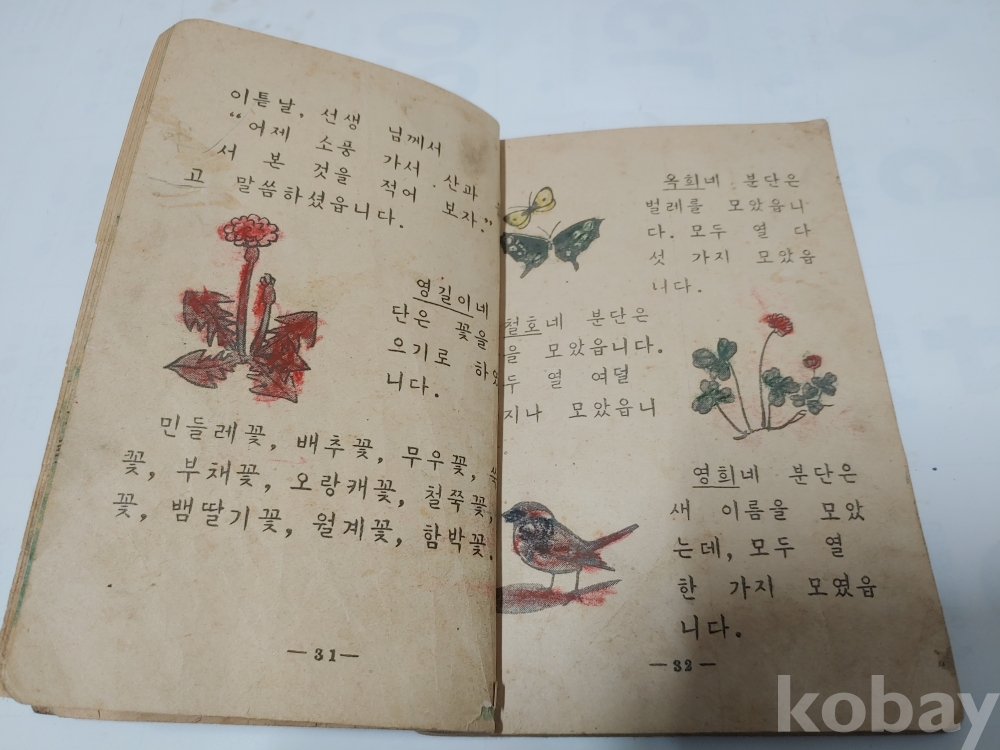 이튿날, 선생 님께서
“어제 소풍 가서 산과
서 본 것을 적어 보자.”
고 말씀하셨읍니다.
영길이네
단은 꽃을
으기로 하였
니다.
민들레꽃, 배추꽃, 무우꽃,
꽃, 부채꽃, 오랑캐꽃, 철쭉꽃,
꽃, 뱀딸기꽃, 월계꽃, 함박꽃.
—31—
옥희네 분단은
벌레를 모았읍니
다. 모두 열 다
섯 가지 모았읍
니다.
철호네 분단은
을 모았읍니다.
두 열 여덟
지나 모았읍니
영희네 분단은
새 이름을 모았
는데, 모두 열
한 가지 모였읍
니다.
—32—
kobay